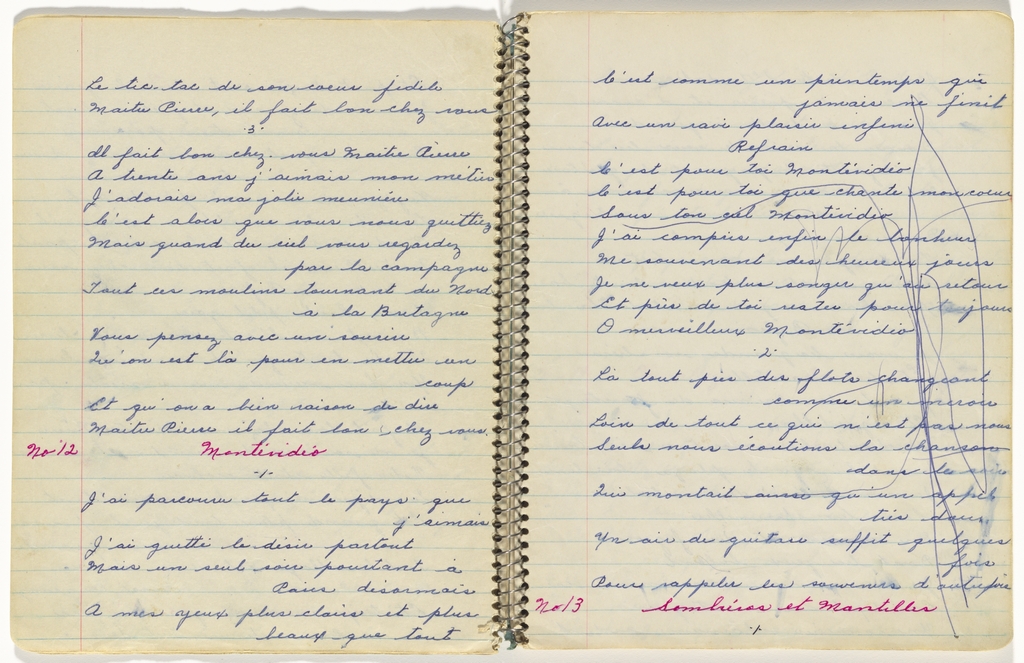 Le tic tac de son coeur fidèle
Maître Pierre, il fait bon chez vous
3
Il fait bon chez. vous Maître Pierre
A trente ans j'aimais mon métier
J'adorais ma jolie meunière
C'est alors que vous nous quittiez
Mais quand du ciel vous regardez
par la campagne
Tout ces moulins tournant du Nord
à la Bretagne
Vous pensez avec un sourire
Qu'on est là pour en mettre un
coup
Et qu'on a bien raison de dire
Maître Pierre il fait bon, chez vous.
No 12 Montévidéo
-1-
J'ai parcouru tout le pays que
j'aimais
J'ai guetté le désir partout
Mais un seul soir pourtant à
Paris désormais
A mes yeux plus clairs et plus
beaux que tout
C'est comme un printemps qui
jamais ne finit
Avec un ravi plaisir infini
Refrain
C'est pour toi Montévidéo
C'est pour toi que chante mon coeur
Sous ton ciel Montévidéo
J'ai compris enfin le bonheur
Me souvenant des heureux jours
Je ne veux plus songer qu'au retour
Et près de toi rester pour toujours
O merveilleux Montévidéo
-2-
Là tout près des flots changeant
comme un miroir
Loin de tout ce qui n'est pas nous
Seuls nous écoutions la chanson
dans le soir
Qui montait ainsi qu'un appel
très doux
Un air de guitare suffit quelques
fois
Pour rappeler les souvenirs d'autrefois
No 13 Sombréros et Mantilles
-1-